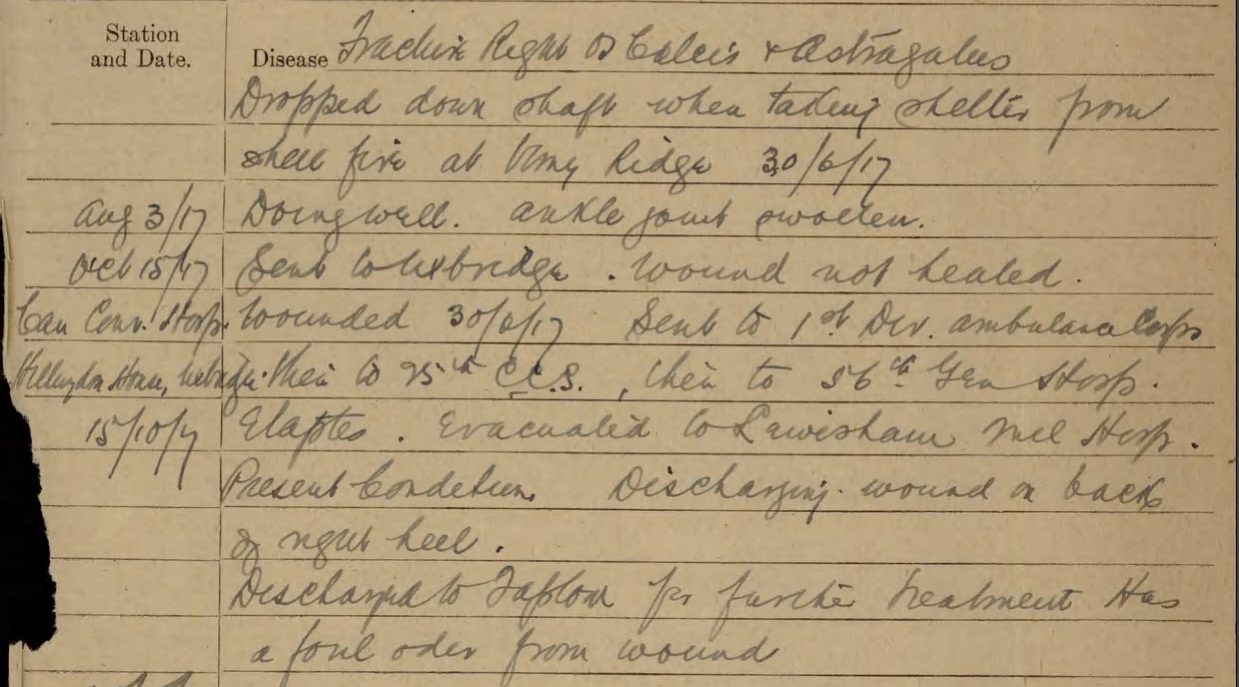 Station
and Date.
Disease Fracture Right Os Calcis & Astragalus
Dropped down shaft when taking shelter from
shell fire at Vimy Ridge 30/6/17
Aug 3/17 Doing well. Ankle joint swollen.
Oct 15/17 Sent to Uxbridge. Wound not healed.
Can Conv. Hosp. Wounded 30/6/17 Sent to 1st Div. ambulance Corps
Hillingdon House, then to C.C.S., then to 56th Gen Hosp.
15/10/17 Etaples. Evacuated to Lewisham Mil Hosp.
Present Condition Discharging wound on back
of right heel.
Discharged to Taplow for further treatment Has
a foul oder from wound